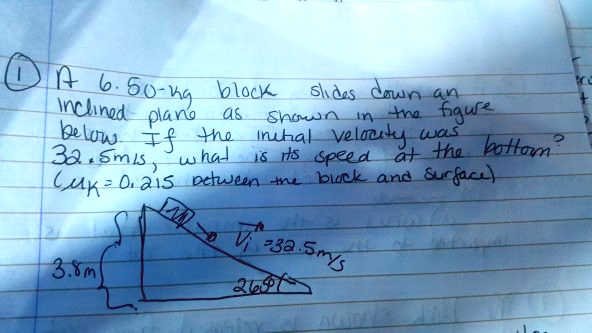 1 A 6.50-kg block slides down an
inclined plane as shown in the figure
below. If the initial velocity was
32.5m/s, what is its speed at the bottom?
(μk = 0.215 between the block and surface)
m
Vi = 32.5m/s
3.8m